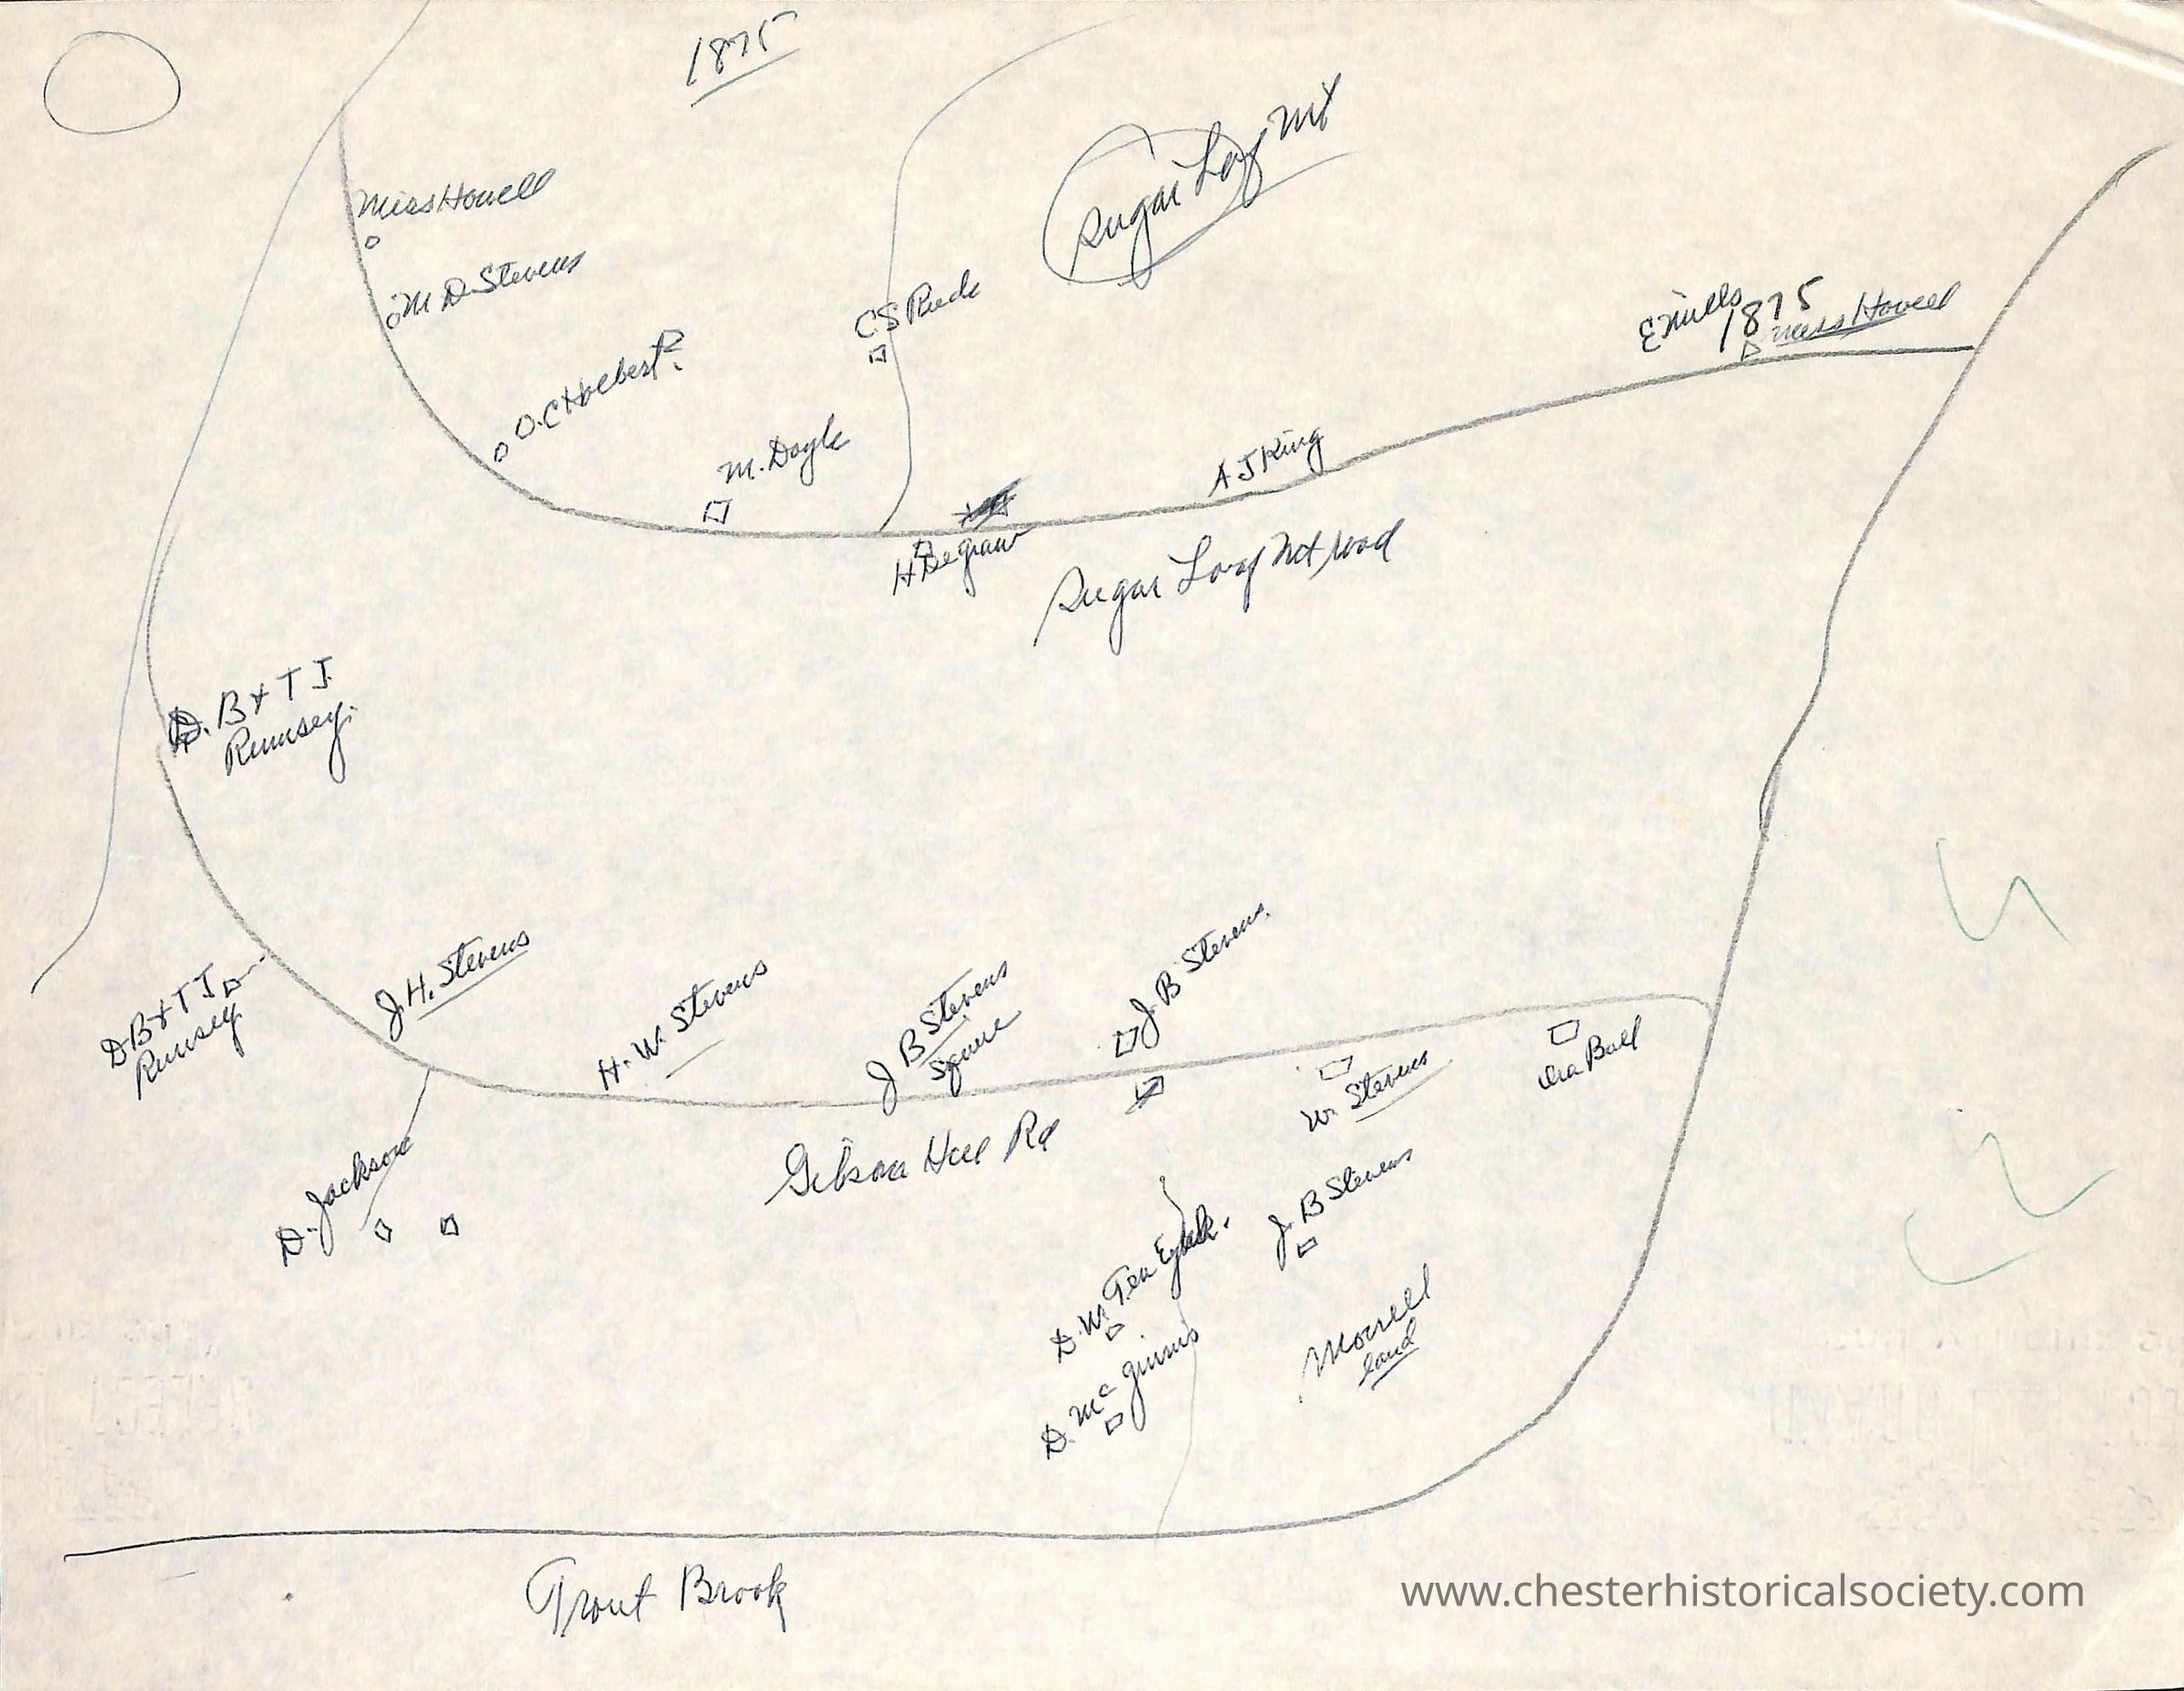 1875
Sugar Loaf Mt
Miss Howell
M D Stevens
O.C Holbert?
C S Rude
M. Doyle
E Mills
1875
Miss Howell
A J King
H Degraw
Sugar Loaf Mt road
D. B & T J
Rumsey.
D B & T J
Rumsey
J. H. Stevens
H. W. Stevens
J B Stevens
Square
J. B Stevens.
W. Stevens
Ira Bull
Gibson Hill Rd
D. Jackson
D. W. Ten Eyck.
J. B Stevens
D. Mc Ginnis
Morrell
land
Trout Brook
www.chesterhistoricalsociety.com